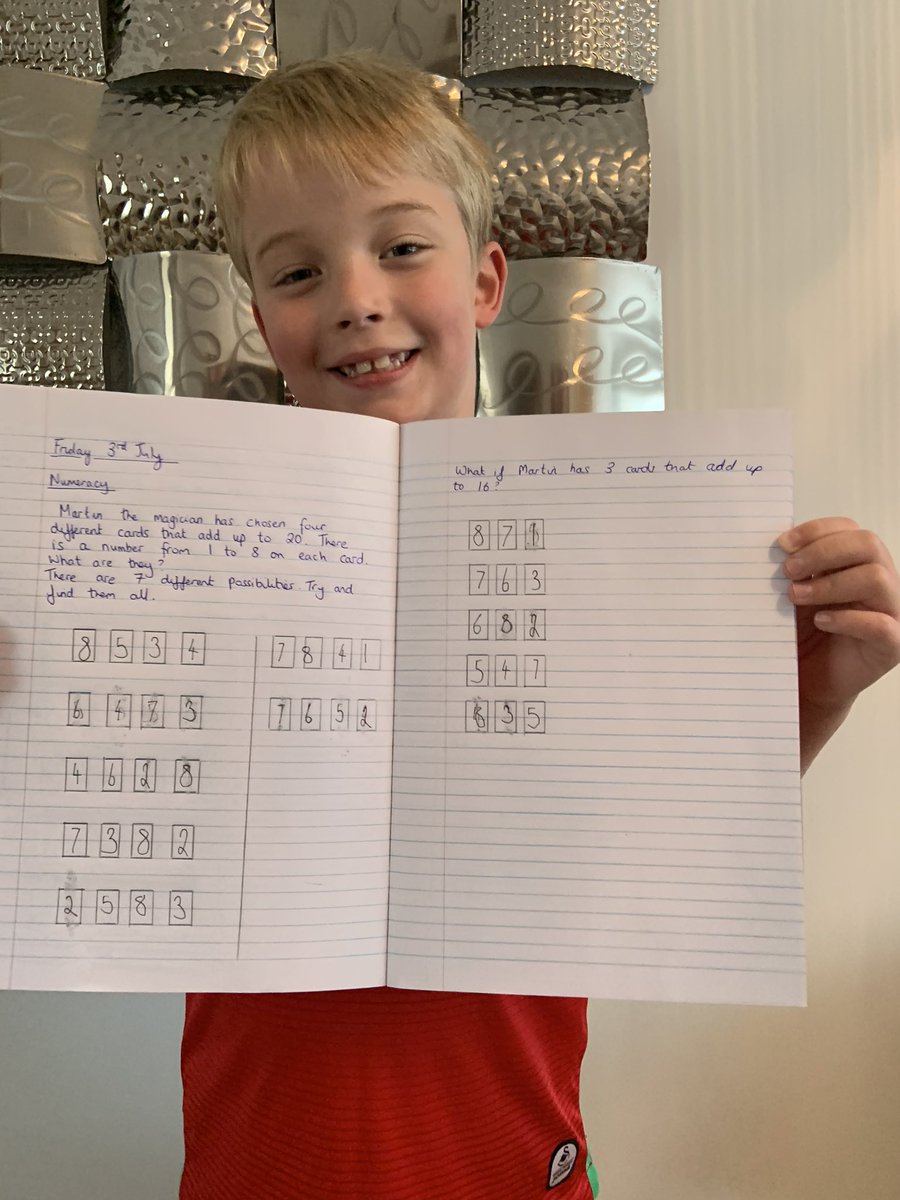 Friday 3rd July
Numeracy
Martin the magician has chosen four
different cards that add up to 20. There
is a number from 1 to 8 on each card.
What are they?
There are 7 different possibilities. Try and
find them all.
8 5 3 4
6 4 7 3
4 6 2 8
7 3 8 2
2 5 8 3
7 8 4 1
7 6 5 2
What if Martin has 3 cards that add up
to 16?
8 7 1
7 6 3
6 8 2
5 4 7
8 3 5